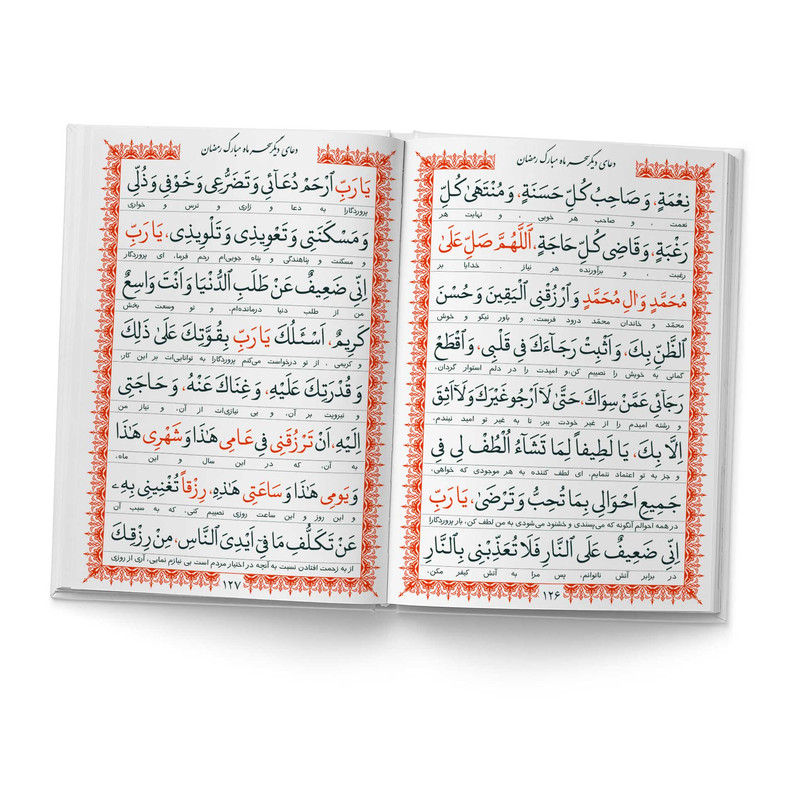 دعای دیگر سحر ماه مبارک رمضان
نِعْمَةٍ، وَصَاحِبُ كُلِّ حَسَنَةٍ، وَمُنْتَهىٰ كُلِّ
نعمت ، و صاحب هر خوبی ، و نهایت هر
رَغْبَةٍ، وَقَاضِى كُلِّ حَاجَةٍ، اَللّٰهُمَّ صَلِّ عَلىٰ
رغبت ، و برآورنده هر نیاز . خدایا بر
مُحَمَّدٍ وَاٰلِ مُحَمَّدٍ وَارْزُقْنِى الْيَقِينَ وَحُسْنَ
محمّد و خاندان محمّد درود فرست، و باور نیکو و خوش
الظَّنِّ بِكَ، وَاَثْبِتْ رَجَآءَكَ فِى قَلْبِى، وَاقْطَعْ
گمانی به خویش را نصیبم کن،و امیدت را در دلم استوار گردان،
رَجَآئِى عَمَّنْ سِوَاكَ، حَتّىٰ لَآ اَرْجُوَ غَيْرَكَ وَلَآ اَثِقَ
و رشته امیدم را از غیر خودت ببر، تا به غیر تو امید نبندم،
اِلَّا بِكَ، يَا لَطِيفاً لِمَا تَشَآءُ اُلْطُفْ لِى فِى
و جز به تو اعتماد ننمایم، ای لطف کننده به هر موجودی که خواهی،
جَمِيعِ اَحْوَالِى بِمَا تُحِبُّ وَتَرْضىٰ، يَا رَبِّ
در همه احوالم آنگونه که می‌پسندی و خشنود می‌شودی به من لطف کن، بار پروردگارا
اِنِّى ضَعِيفٌ عَلَى النَّارِ فَلَا تُعَذِّبْنِى بِالنَّارِ
در برابر آتش ناتوانم، پس مرا به آتش کیفر مکن،
۱۲۶
دعای دیگر سحر ماه مبارک رمضان
يَا رَبِّ ارْحَمْ دُعَآئِى وَتَضَرُّعِى وَخَوْفِى وَذُلِّى
پروردگارا به دعا و زاری و ترس و خواری
وَمَسْكَنَتِى وَتَعْوِيذِى وَتَلْوِيذِى، يَا رَبِّ
و مسکنت و پناهندگی و پناه جویی‌ام رحم فرما، ای پروردگار
اِنِّى ضَعِيفٌ عَنْ طَلَبِ الدُّنْيَا وَاَنْتَ وَاسِعٌ
من از طلب دنیا درمانده‌ام، و تو وسعت بخش
كَرِيمٌ، اَسْئَلُكَ يَا رَبِّ بِقُوَّتِكَ عَلىٰ ذٰلِكَ
و کریمی ، از تو درخواست می‌کنم پروردگارا به توانایی‌ات بر این کار،
وَقُدْرَتِكَ عَلَيْهِ، وَغِنَاكَ عَنْهُ، وَحَاجَتِى
و نیرویت بر آن، و بی نیازی‌ات از آن، و نیاز من
اِلَيْهِ، اَنْ تَرْزُقَنِى فِى عَامِى هٰذَا وَشَهْرِى هٰذَا
به آن، که در این سال و این ماه،
وَيَوْمِى هٰذَا وَسَاعَتِى هٰذِهِ، رِزْقاً تُغْنِينِى بِهِ
و این روز و این ساعت روزی نصیبم کنی، که به سبب آن
عَنْ تَكَلُّفِ مَا فِى اَيْدِى النَّاسِ، مِنْ رِزْقِكَ
از به زحمت افتادن نسبت به آنچه در اختیار مردم است بی نیازم نمایی، آری از روزی
۱۲۷